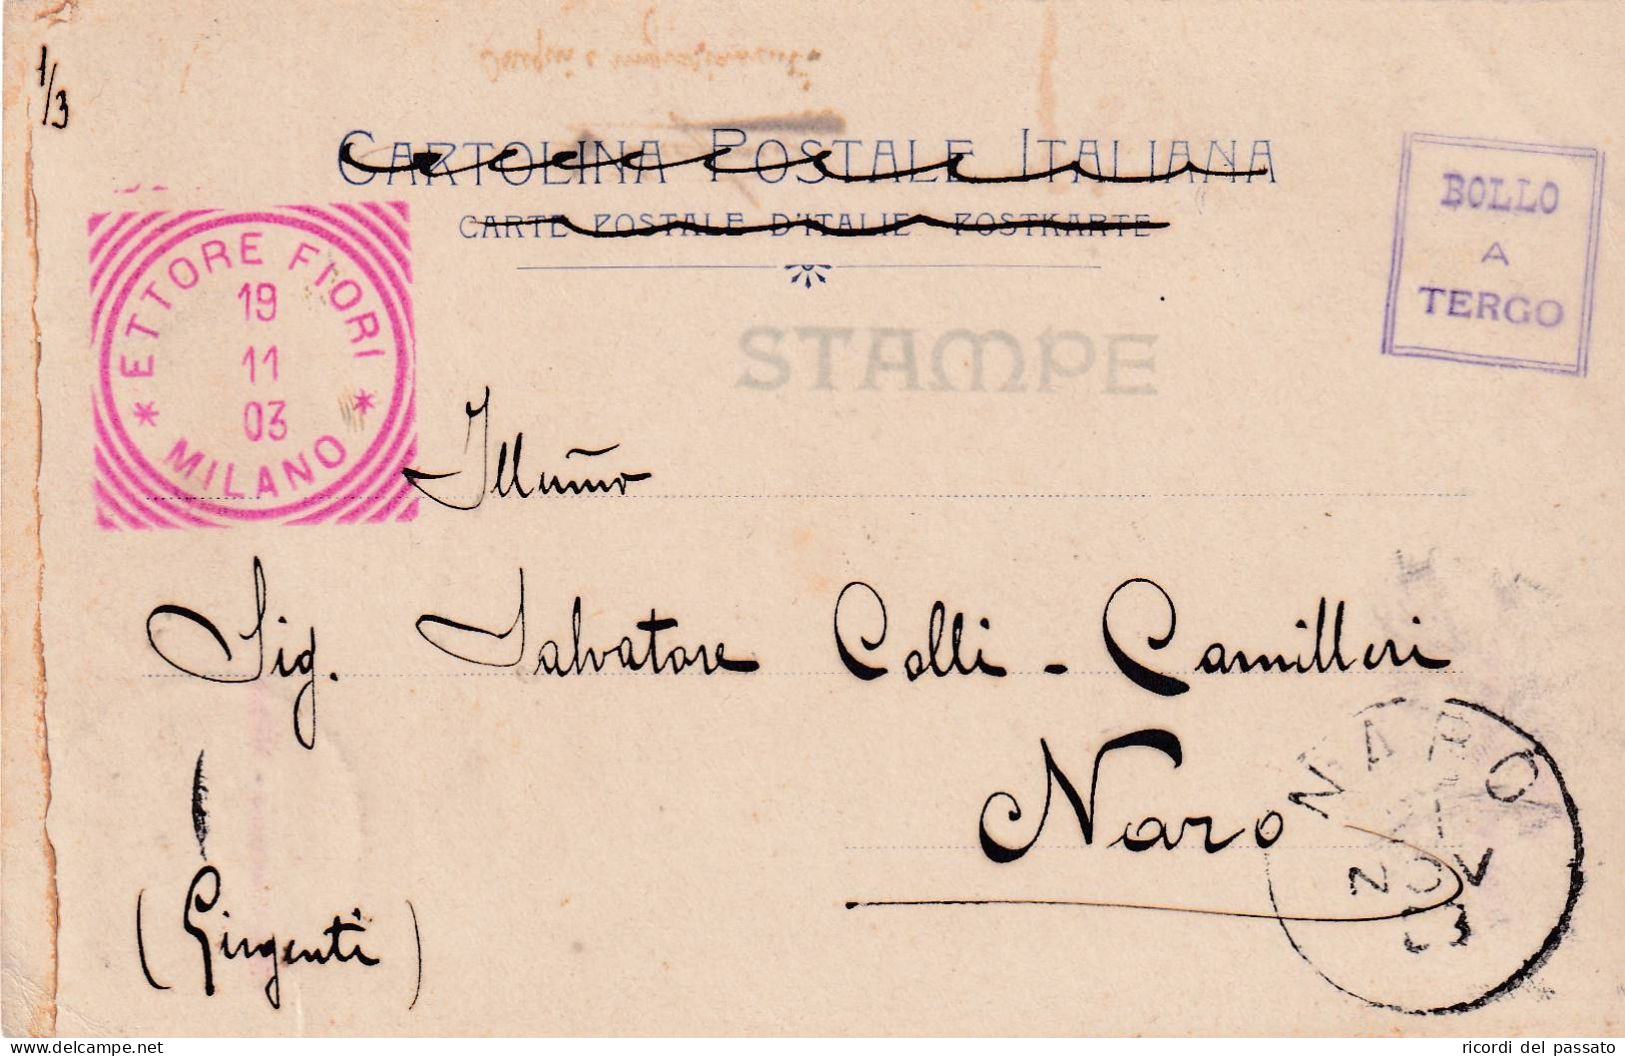 1/3
CARTOLINA POSTALE ITALIANA
CARTE POSTALE D'ITALIE - POSTKARTE
* ETTORE FIORI *
19
11
03
MILANO
BOLLO
A
TERGO
STAMPE
Illumo
Sig. Salvatore Colli - Camilleri
Naro
(Girgenti)
NARO
NOV
03
delcampe.net
ricordi del passato